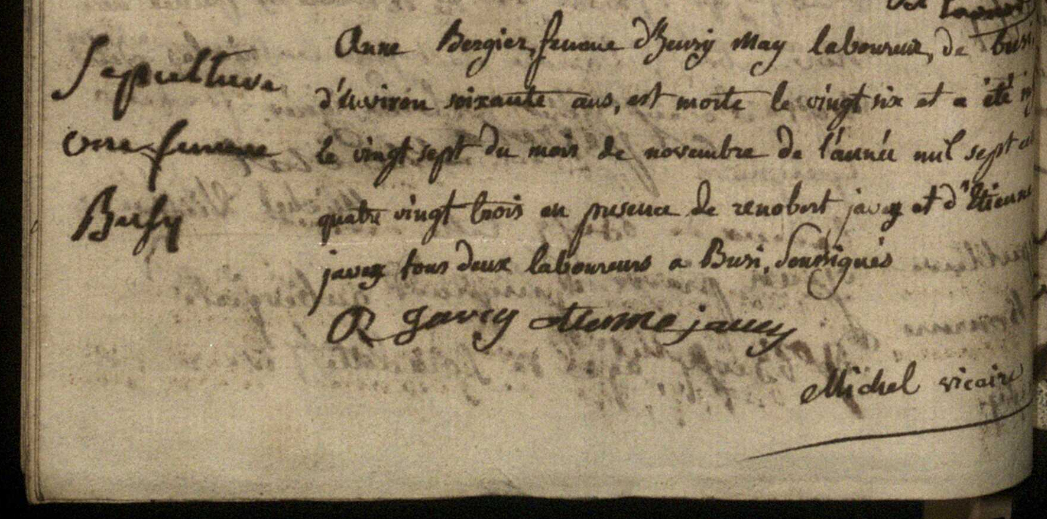 Sepulture
une femme
Busy
Anne Bergier femme d'henry May laboureur, de busi
d'environ soixante ans, est morte le vingt six et a été
le vingt sept du mois de novembre de l'année mil sept
quatre vingt trois en presence de renobert javey et d'Etienne
javey tous deux laboureurs a Busi, soussignés
R Javey etienne javey
Michel vicaire